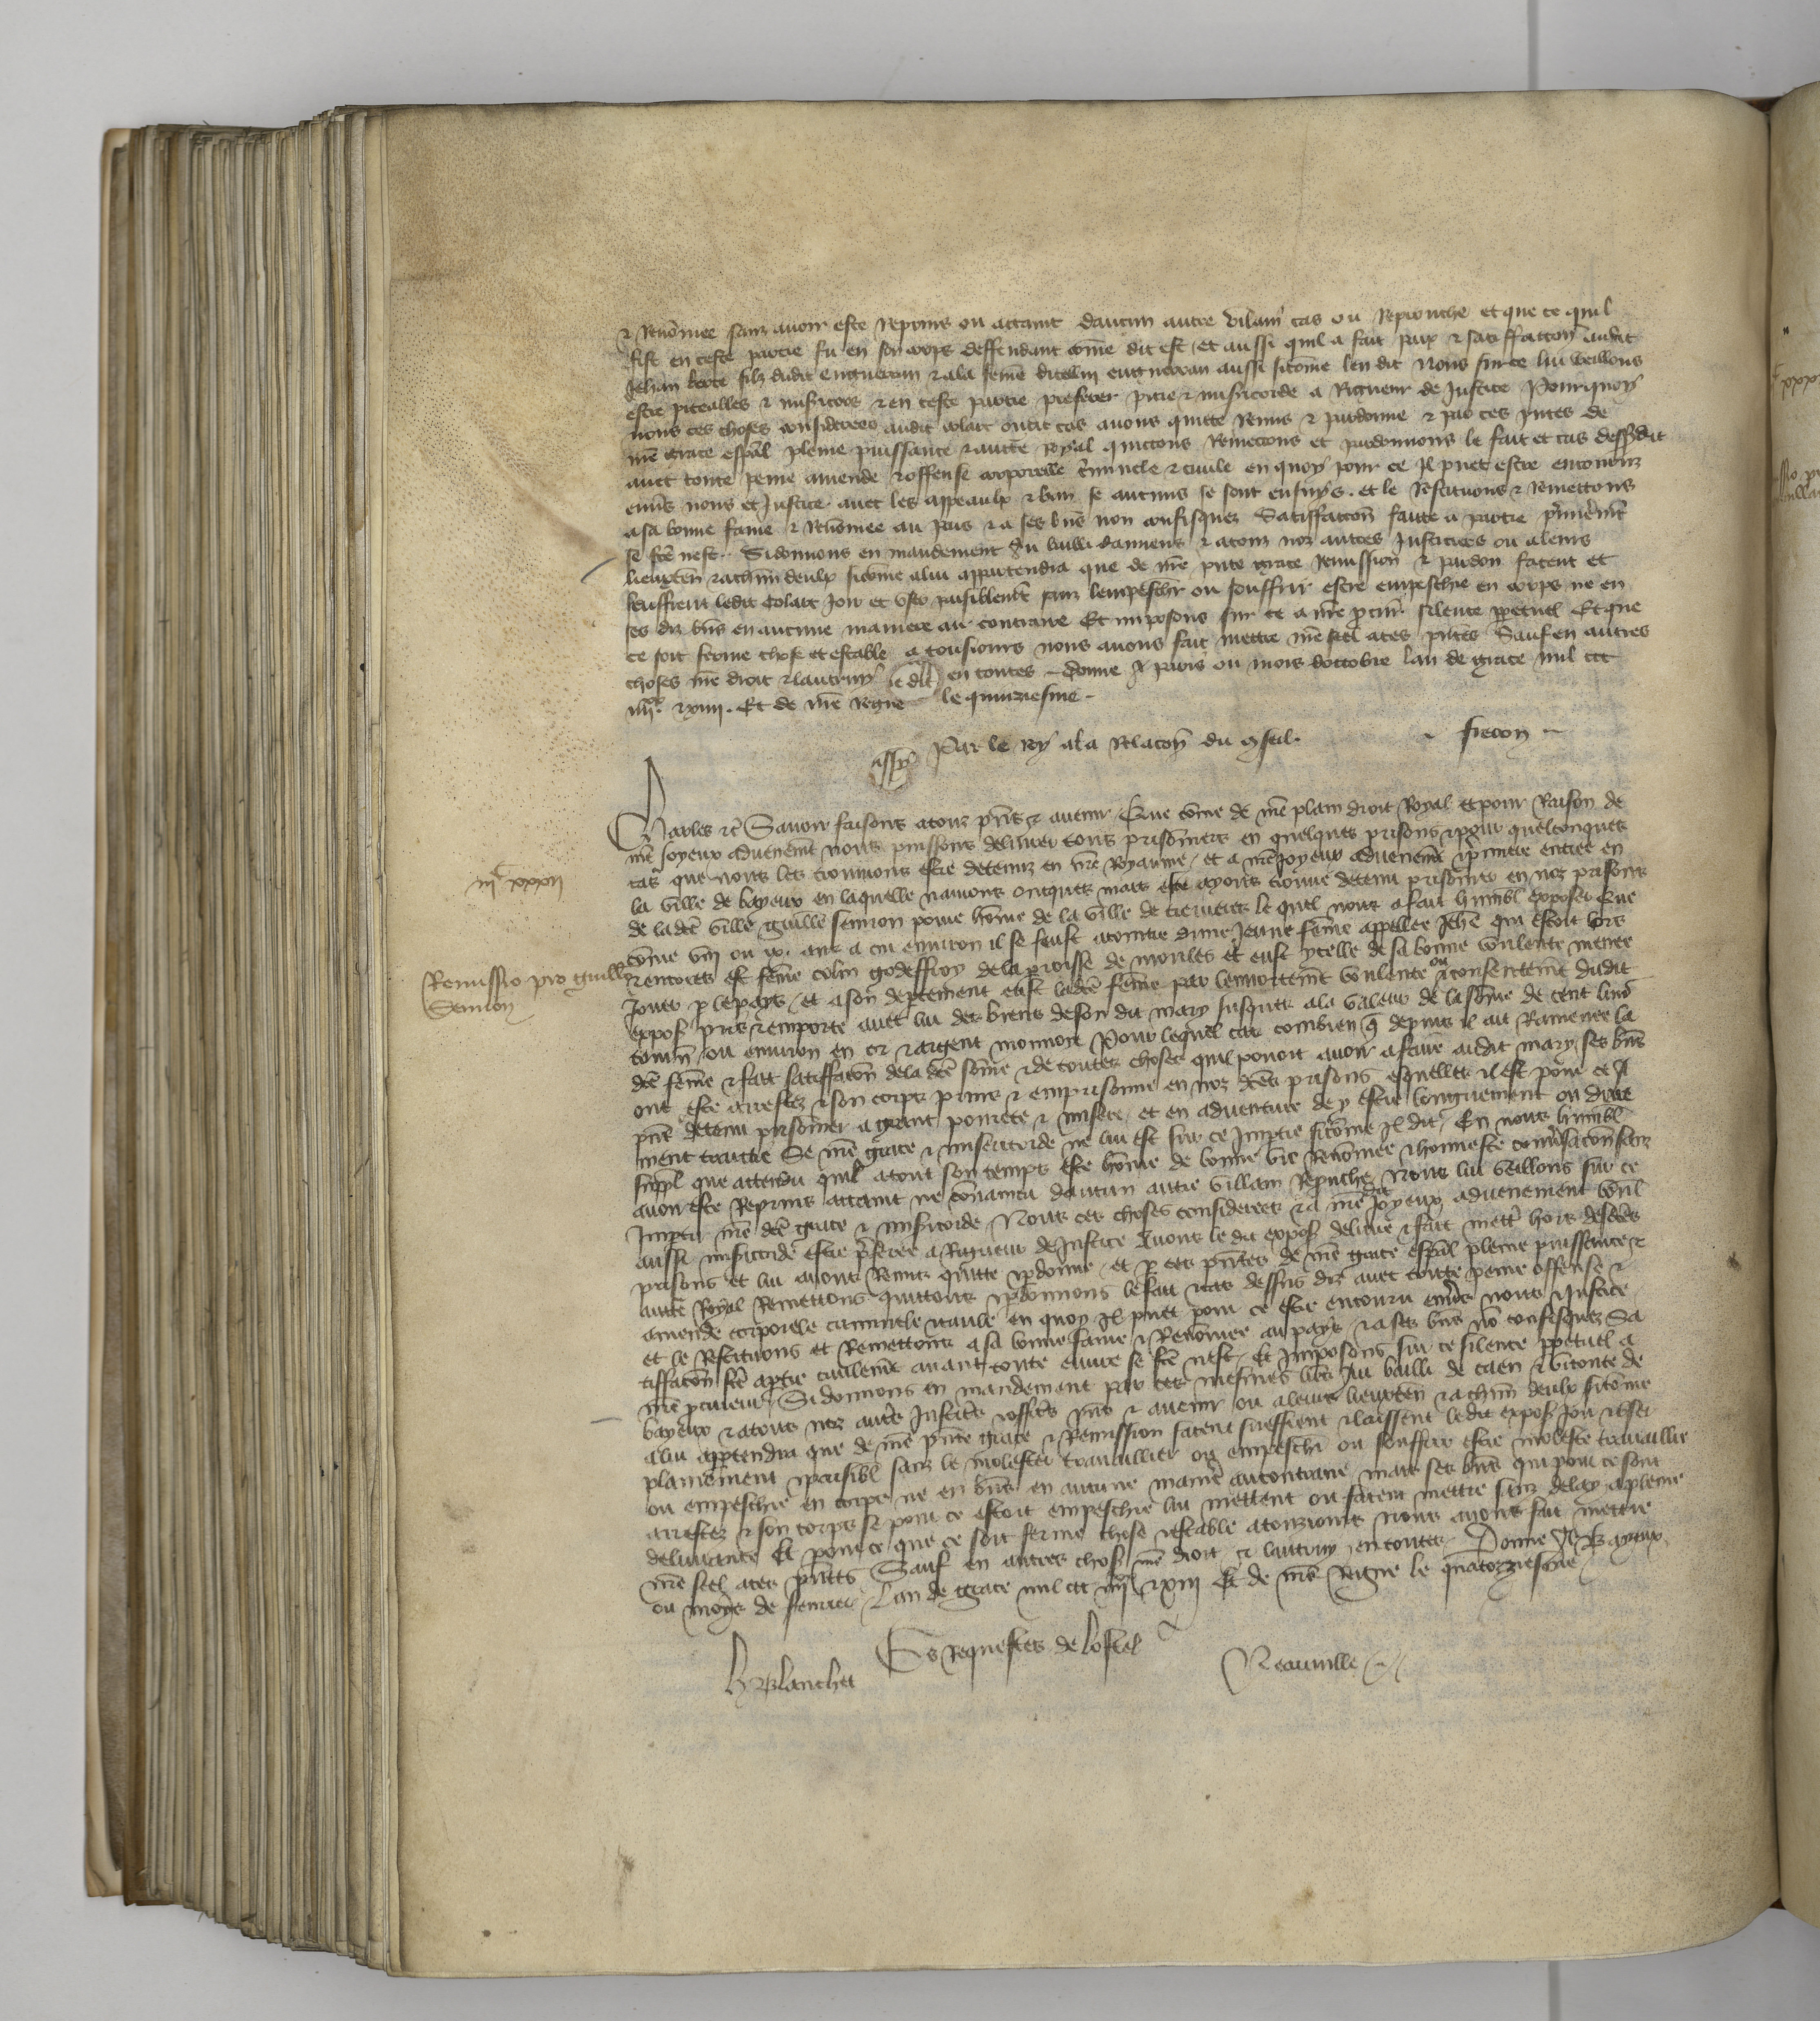 & renōmee sanz avoir este reprins ou attaint daucun autre vilain cas ou reprouche et que ce quil
fist en ceste partie fu en son corps deffendant cōme dit est et aussi quil a fait paix & satiffaccion audit
Jehan filz dudit enguerran & a la feme dicellui enguerran aussi sicōme len dit Nous sur ce lui veillons
estre piteables & misericors & en ceste partie preferer pitie & misericorde a rigueur de justice Pourquoy
nous ces choses considerees audit colart ou dit cas avons quitte remis & pardonne & par ces pñtes de
nr̃e grace esp̃al pleine puissance & auctē royal quictons remectons et pardonnons le fait et cas dess9dit
avec toute peine amende & offense corporelle criminele & civile en quoy pour ce il puet estre encouruz
envers nous et justice avec les appeaulx & ban se aucuns se sont ensuys. et le restituons & remettons
a sa bonne fame & renōmee au pais & a ses biēs non confisquez Satiffaccōn faicte a partie premieremt
se fcē nest. Si donnons en mandement au bailli damiens & a touz noz autres justiciers ou a leurs
lieuxten̄ & a chūn deulx sicōme a lui appartendra que de nr̃e pñte grace remission & pardon facent et
seuffrent ledit colart joir et user paisiblemt sanz lempeschr ou souffrir estre empeschie en corps ne en
ses diz biēs en aucune maniere au contraire Et imposons sur ce a nr̃e procur silence perpetuel Et que
ce soit ferme chose et estable a tousiours nous avons fait mettre nr̃e seel a ces pñtes Sauf en autres
choses nr̃e droit & lautruy en toutes donne a paris ou mois doctobre lan de grace mil ccc
iiiixx & xiiii. Et de nr̃e regne le quinziesme
Par le roy a la relacōn du conseil. freron
Charles &c Savoir faisons a touz pñs & avenir Que cōme de nr̃e plain droit royal et pour raison de
nr̃e joyeux advenemt nous puissons delivrer tous prisonniers en quelques prisons & pour quelconques
cas que nous les trouvions estre detenuz en nr̃e royaume et a nr̃e joyeux advenemt & premiere entree en
la ville de bayeux en laquelle navions onques mais este ayons trouve detenu prisonnier en noz prisons
de ladcē ville guillē semion povre hōme de la ville de le quel nous a fait humbl exposer que
cōme viii ou ix. ans a ou environ il se feust acointie dune jeune fēme appellee Jehē qui estoit lors
& encores est fēme colin godeffroy de la paroisse de et eust ycelle de sa bonne voulente menee
jouer p le pays et a son deptement eust ladcē fēme par lennortemt voulente ou consentemt dudit
expos pris & emporte avec lui des biens de son dit mary jusques a la valeur de la sōme de cent livr
tourn̄ ou environ en or & argent monnoie Pour lequel cas combien q̄ depuis il ait ramenee la
dcē fēme & fait satiffacōn de la dcē sōme & de toutes choses quil povoit avoir a faire audit mary ses biēs
ont este arrestez & son corps prins & emprisonne en noz dcēs prisons esquelles il est pour ce a
pñt detenu prisonnier a grant povrete & misere et en adventure de y estre longuement ou dure
ment traictie Se nr̃e grace & misericorde ne lui est sur ce impartie sicōme il dit En nous humbl
suppl que attendu quil a tout son temps este hōme de bonne vie renōmee & honneste conversacōn sanz
avoir este reprins attaint ne convaincu daucun autre villain repruche Nous lui veillons sur ce
impartir nr̃e dcē grace & misericorde Nous ces choses considerees & a nr̃e dit joyeux advenement voul
aussi misericorde estre preferee a rigueur de justice Avons le dit expos delivre & fait mettr hors desdcēs
prisons et lui avons remis quitte & pardonne et p ces pñtes de nr̃e grace esp̃al pleine puissance &
auctē royal remettons quittons & pardonnons le fait & cas dessus diz avec toute peine offense &
amende corporele criminele & civile en quoy il puet pour ce estre encouru envers nous & justice
et le restituons et remettons a sa bonne fame & renōmee au pays & a ses biēs nō confisquez Sa
tiffacōn fcē a ptie civilemt avant toute euvre se fcē nest Et imposons sur ce silence ppetuel a
nr̃e procureur Si donnons en mandement par ces mesmes lrēs au bailli de caen & viconte de
bayeux & a tous noz autrēs justicērs & officērs pñs & avenir ou a leurs lieuxten̄ & a chūn deulx sicōme
a lui appartendra que de nr̃e pñte grace & remission facent sueffrent & laissent ledit expos joir & user
plainement & paisibl sanz le molester travaillier ou empeschr ou souffrir estre moleste travaillie
ou empeschie en corps ne en biēs en aucune maniē au contraire mais ses biēs qui pour ce sont
arrestez & son corps se pour ce estoit empeschie lui mettent ou facent mettre sanz delay a pleine
delivrance Et pour ce que ce soit ferme chose & estable a touzjours nous avons fait mettre
nr̃e seel a ces pñtes Sauf en autres chos nr̃e droit & lautruy en toutes Donne a Bayeux
ou moys de fevrier Lan de grace mil ccc iiiixx & xiii Et de nr̃e regne le quatorziesme
Es requestes de lostel
H Blanchet Neauville
iiic xxxii
Remissio pro guillo
Semion